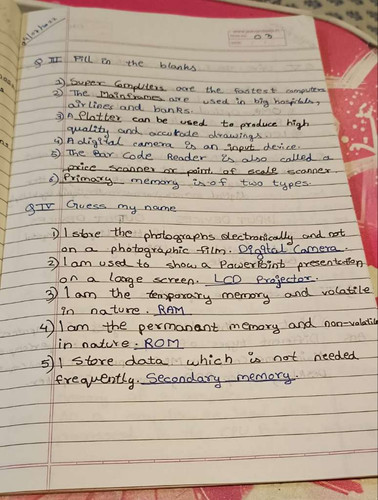 03
Q III Fill in the blanks.
1) Super Computers are the fastest computers
2) The Mainframes are used in big hospitals,
airlines and banks.
3) A Plotter can be used to produce high
quality and accurate drawings.
4) A digital camera is an input device.
5) The Bar Code Reader is also called a
price scanner or point of scale scanner.
6) Primary memory is of two types.
Q IV Guess my name
1) I store the photographs electronically and not
on a photographic film. Digital Camera.
2) I am used to show a Powerpoint presentation
on a large screen. LCD Projector.
3) I am the temporary memory and volatile
in nature. RAM
4) I am the permanent memory and non-volatile
in nature. ROM
5) I store data which is not needed
frequently. Secondary memory.